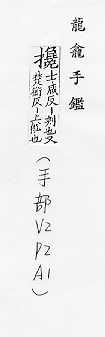 龍龕手鑑
攙士咸反刺也又
楚銜反也
(手部V2P2A1)